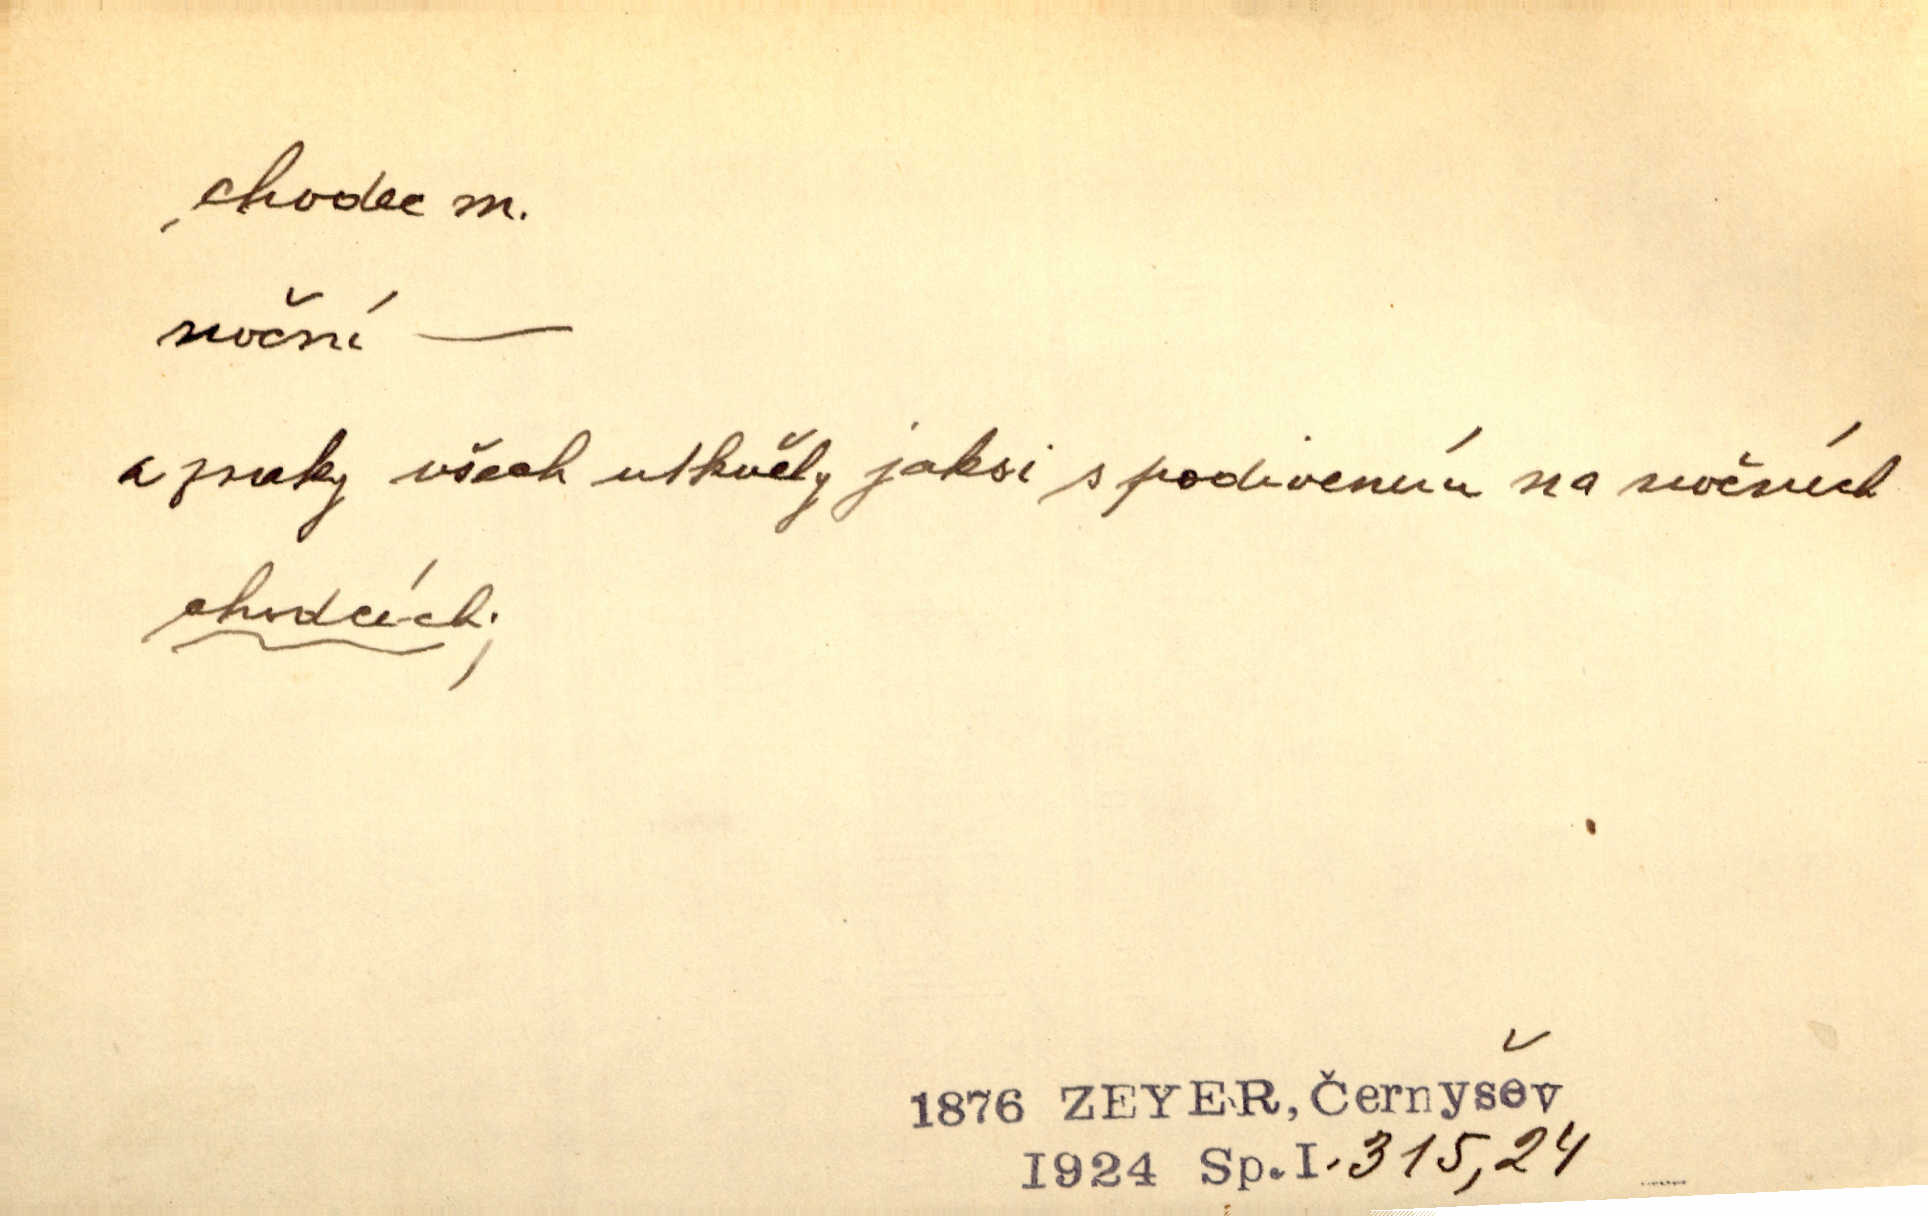 chodec m.
noční —
a zraky všech utkvěly jaksi s podivením na nočních
chodcích;
1876 ZEYER, Černyšev
1924 Sp.I.315,24